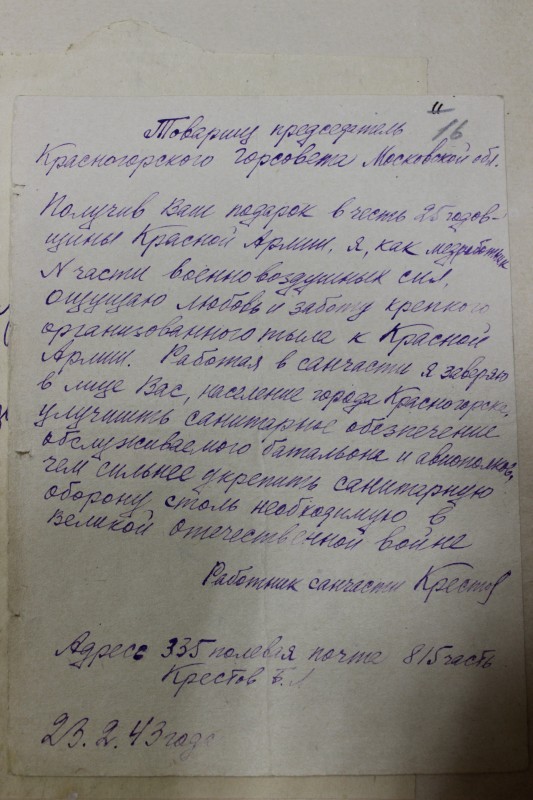 11
16
Товарищ председатель
Красногорского Горсовета Московской обл.
Получив Ваш подарок в честь 25 годов-
щины Красной Армии, я, как медработник
N части военновоздушных сил,
ощущаю любовь и заботу крепкого
организованного тыла к Красной
Армии. Работая в санчасти я заверяю
в лице Вас, население города Красногорска,
улучшить санитарное обезпечение
обслуживаемого батальона и авиополка,
чем сильнее укрепить санитарную
оборону, столь необходимую в
Великой отечественной войне
Работник санчасти Крестов
Адресс 335 полевая почта 815 часть
Крестов Б. Л
23. 2. 43 года